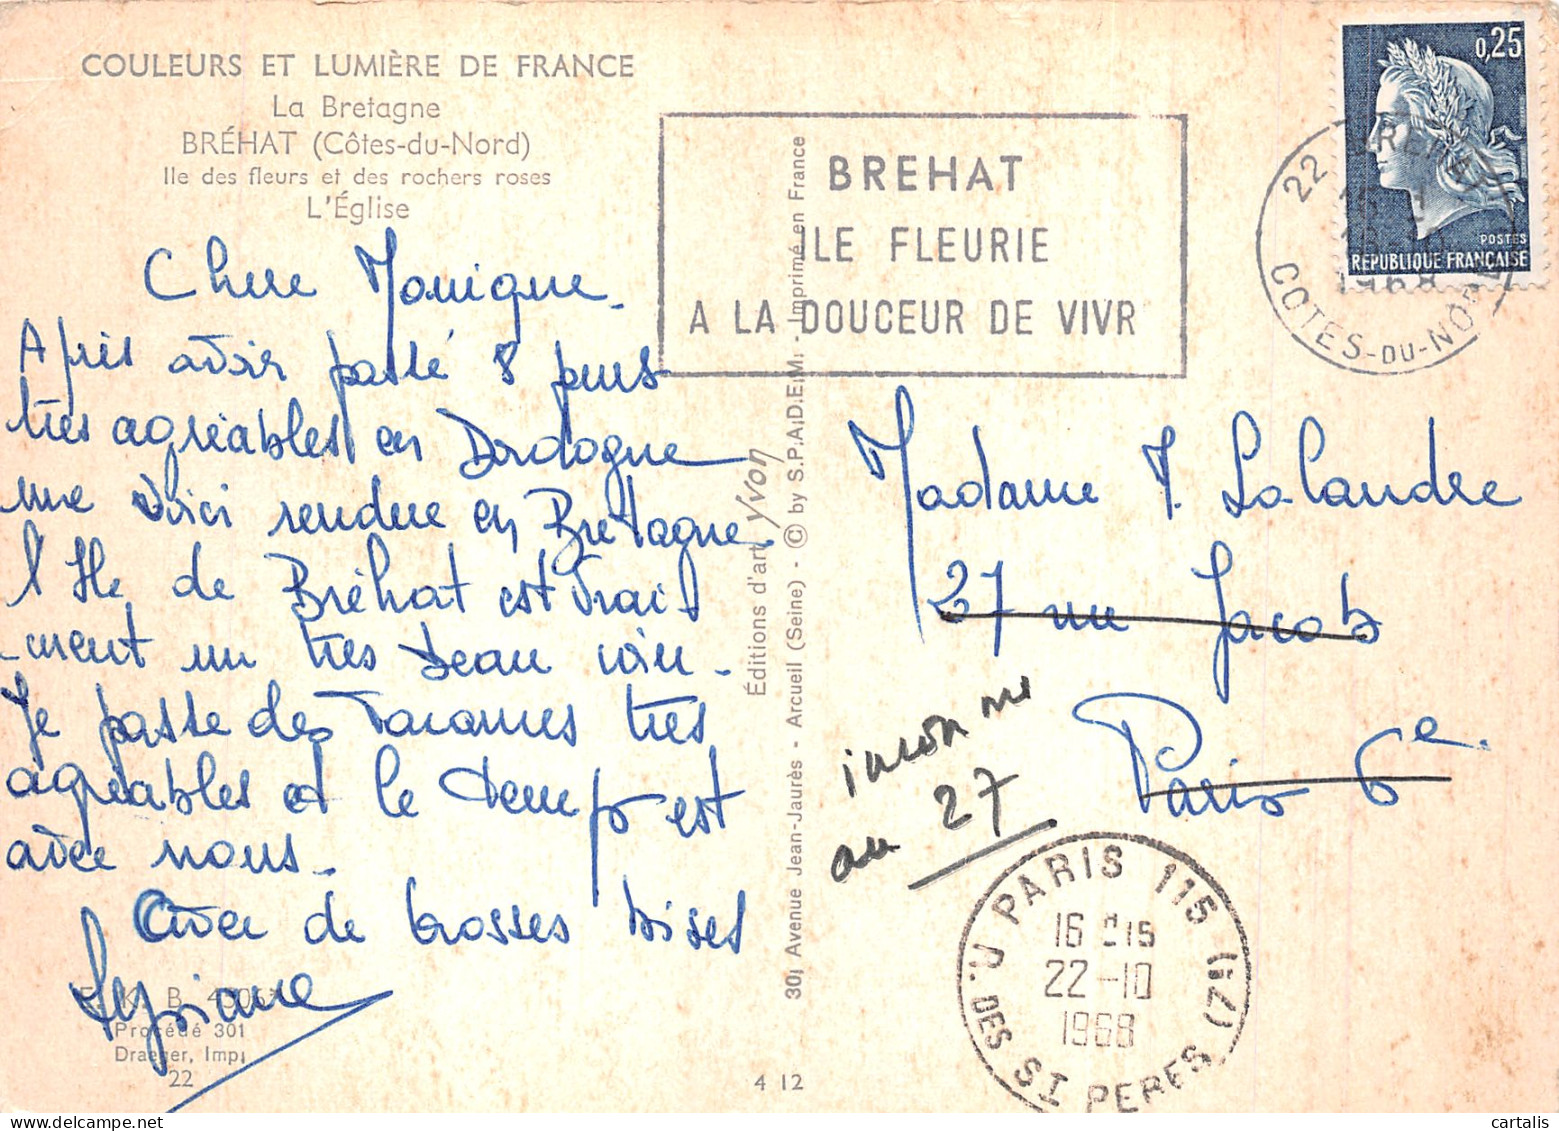 COULEURS ET LUMIÈRE DE FRANCE
La Bretagne
BRÉHAT (Côtes-du-Nord)
Ile des fleurs et des rochers roses
L'Église
Chere Monique.
Après avoir passé 8 jours
très agréables en Dordogne
me voici rendue en Bretagne
l'Ile de Bréhat est vrai
-ment un très beau coin.
Je passe des vacances très
agréables et le temps est
avec nous.
Avec de grosses bises
E. K. B.
Procédé 301
Draeger, Imp.
22
BREHAT
ILE FLEURIE
A LA DOUCEUR DE VIVR
Éditions d'art Yvon
30, Avenue Jean-Jaurès - Arcueil (Seine) - © by S.P.A.D.E.M. - Imprimé en France
4 12
0,25
POSTES
RÉPUBLIQUE FRANÇAISE
22 BREHAT
1968
COTES-DU-NORD
Madame J. Lalandre
27 rue Jacob
Paris 6e.
inconnu
au 27
PARIS 115 (7e)
16 H15
22-10
1968
R. DES STS PERES